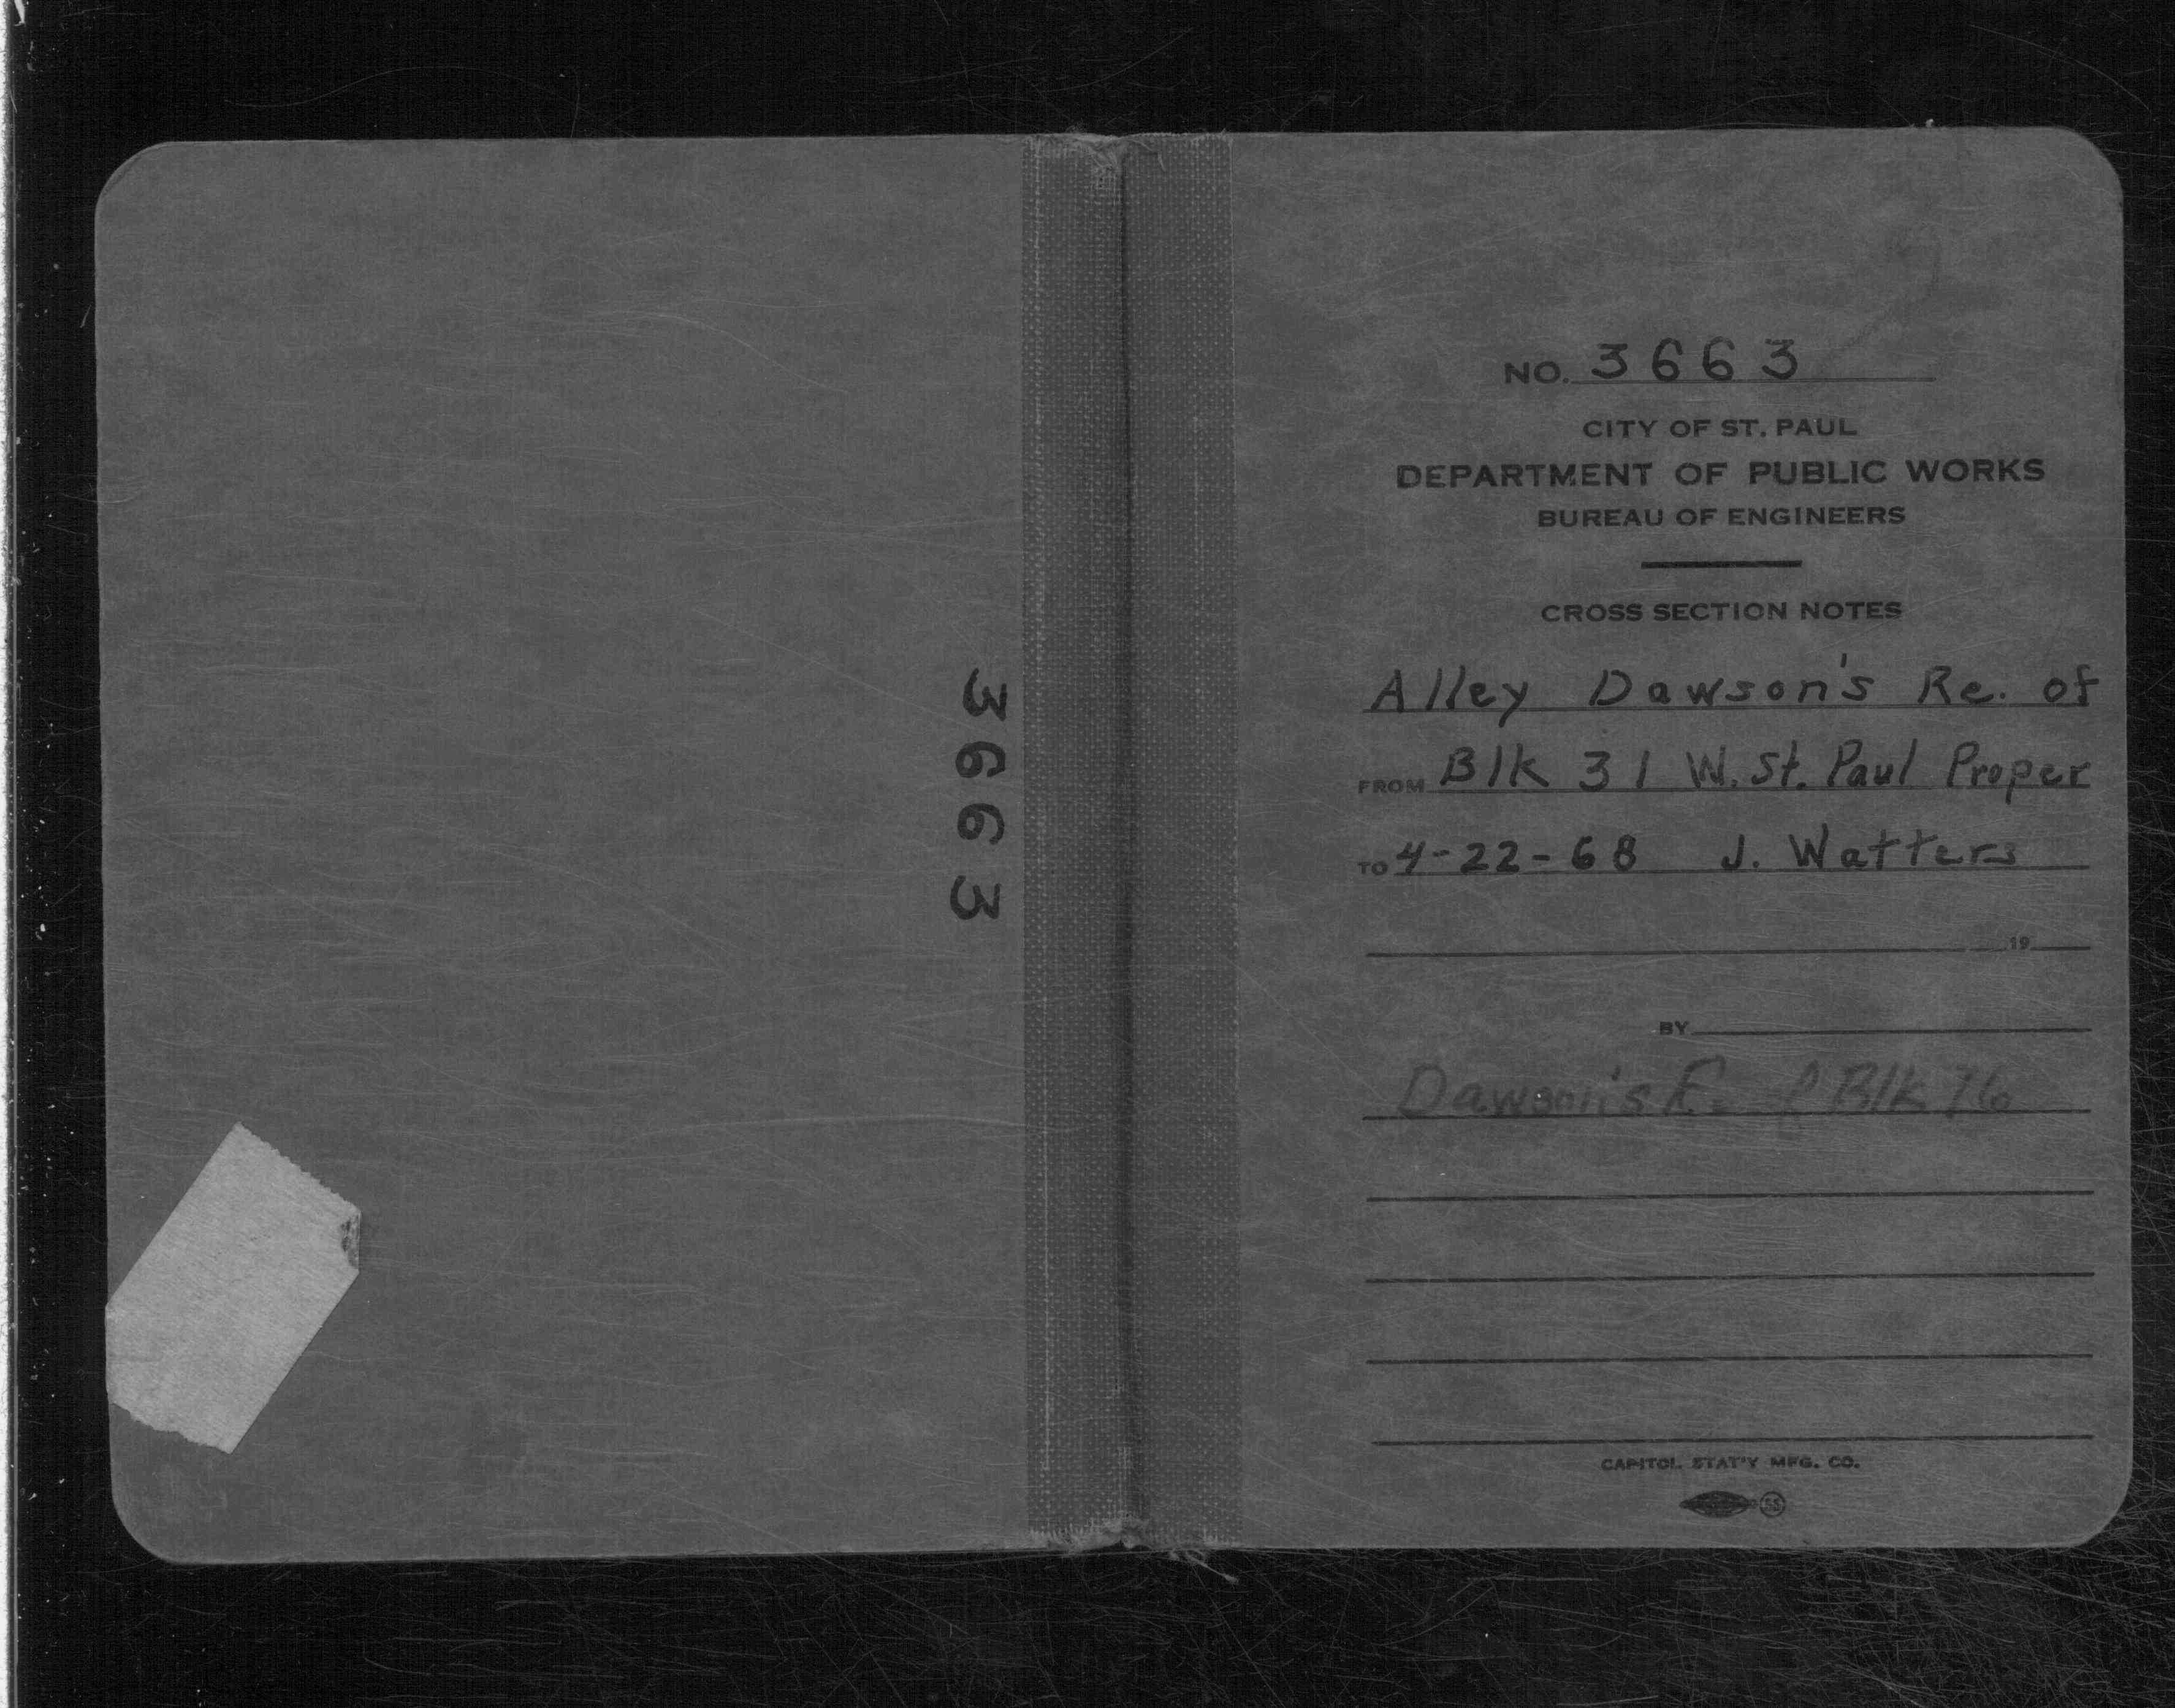 3663
NO. 3663
CITY OF ST. PAUL
DEPARTMENT OF PUBLIC WORKS
BUREAU OF ENGINEERS
CROSS SECTION NOTES
Alley Dawson's Re. of
FROM Blk 31 W. St. Paul Proper
TO 4-22-68 J. Watters
19
BY
Dawson's Blk 76
CAPITOL STAT'Y MFG. CO.